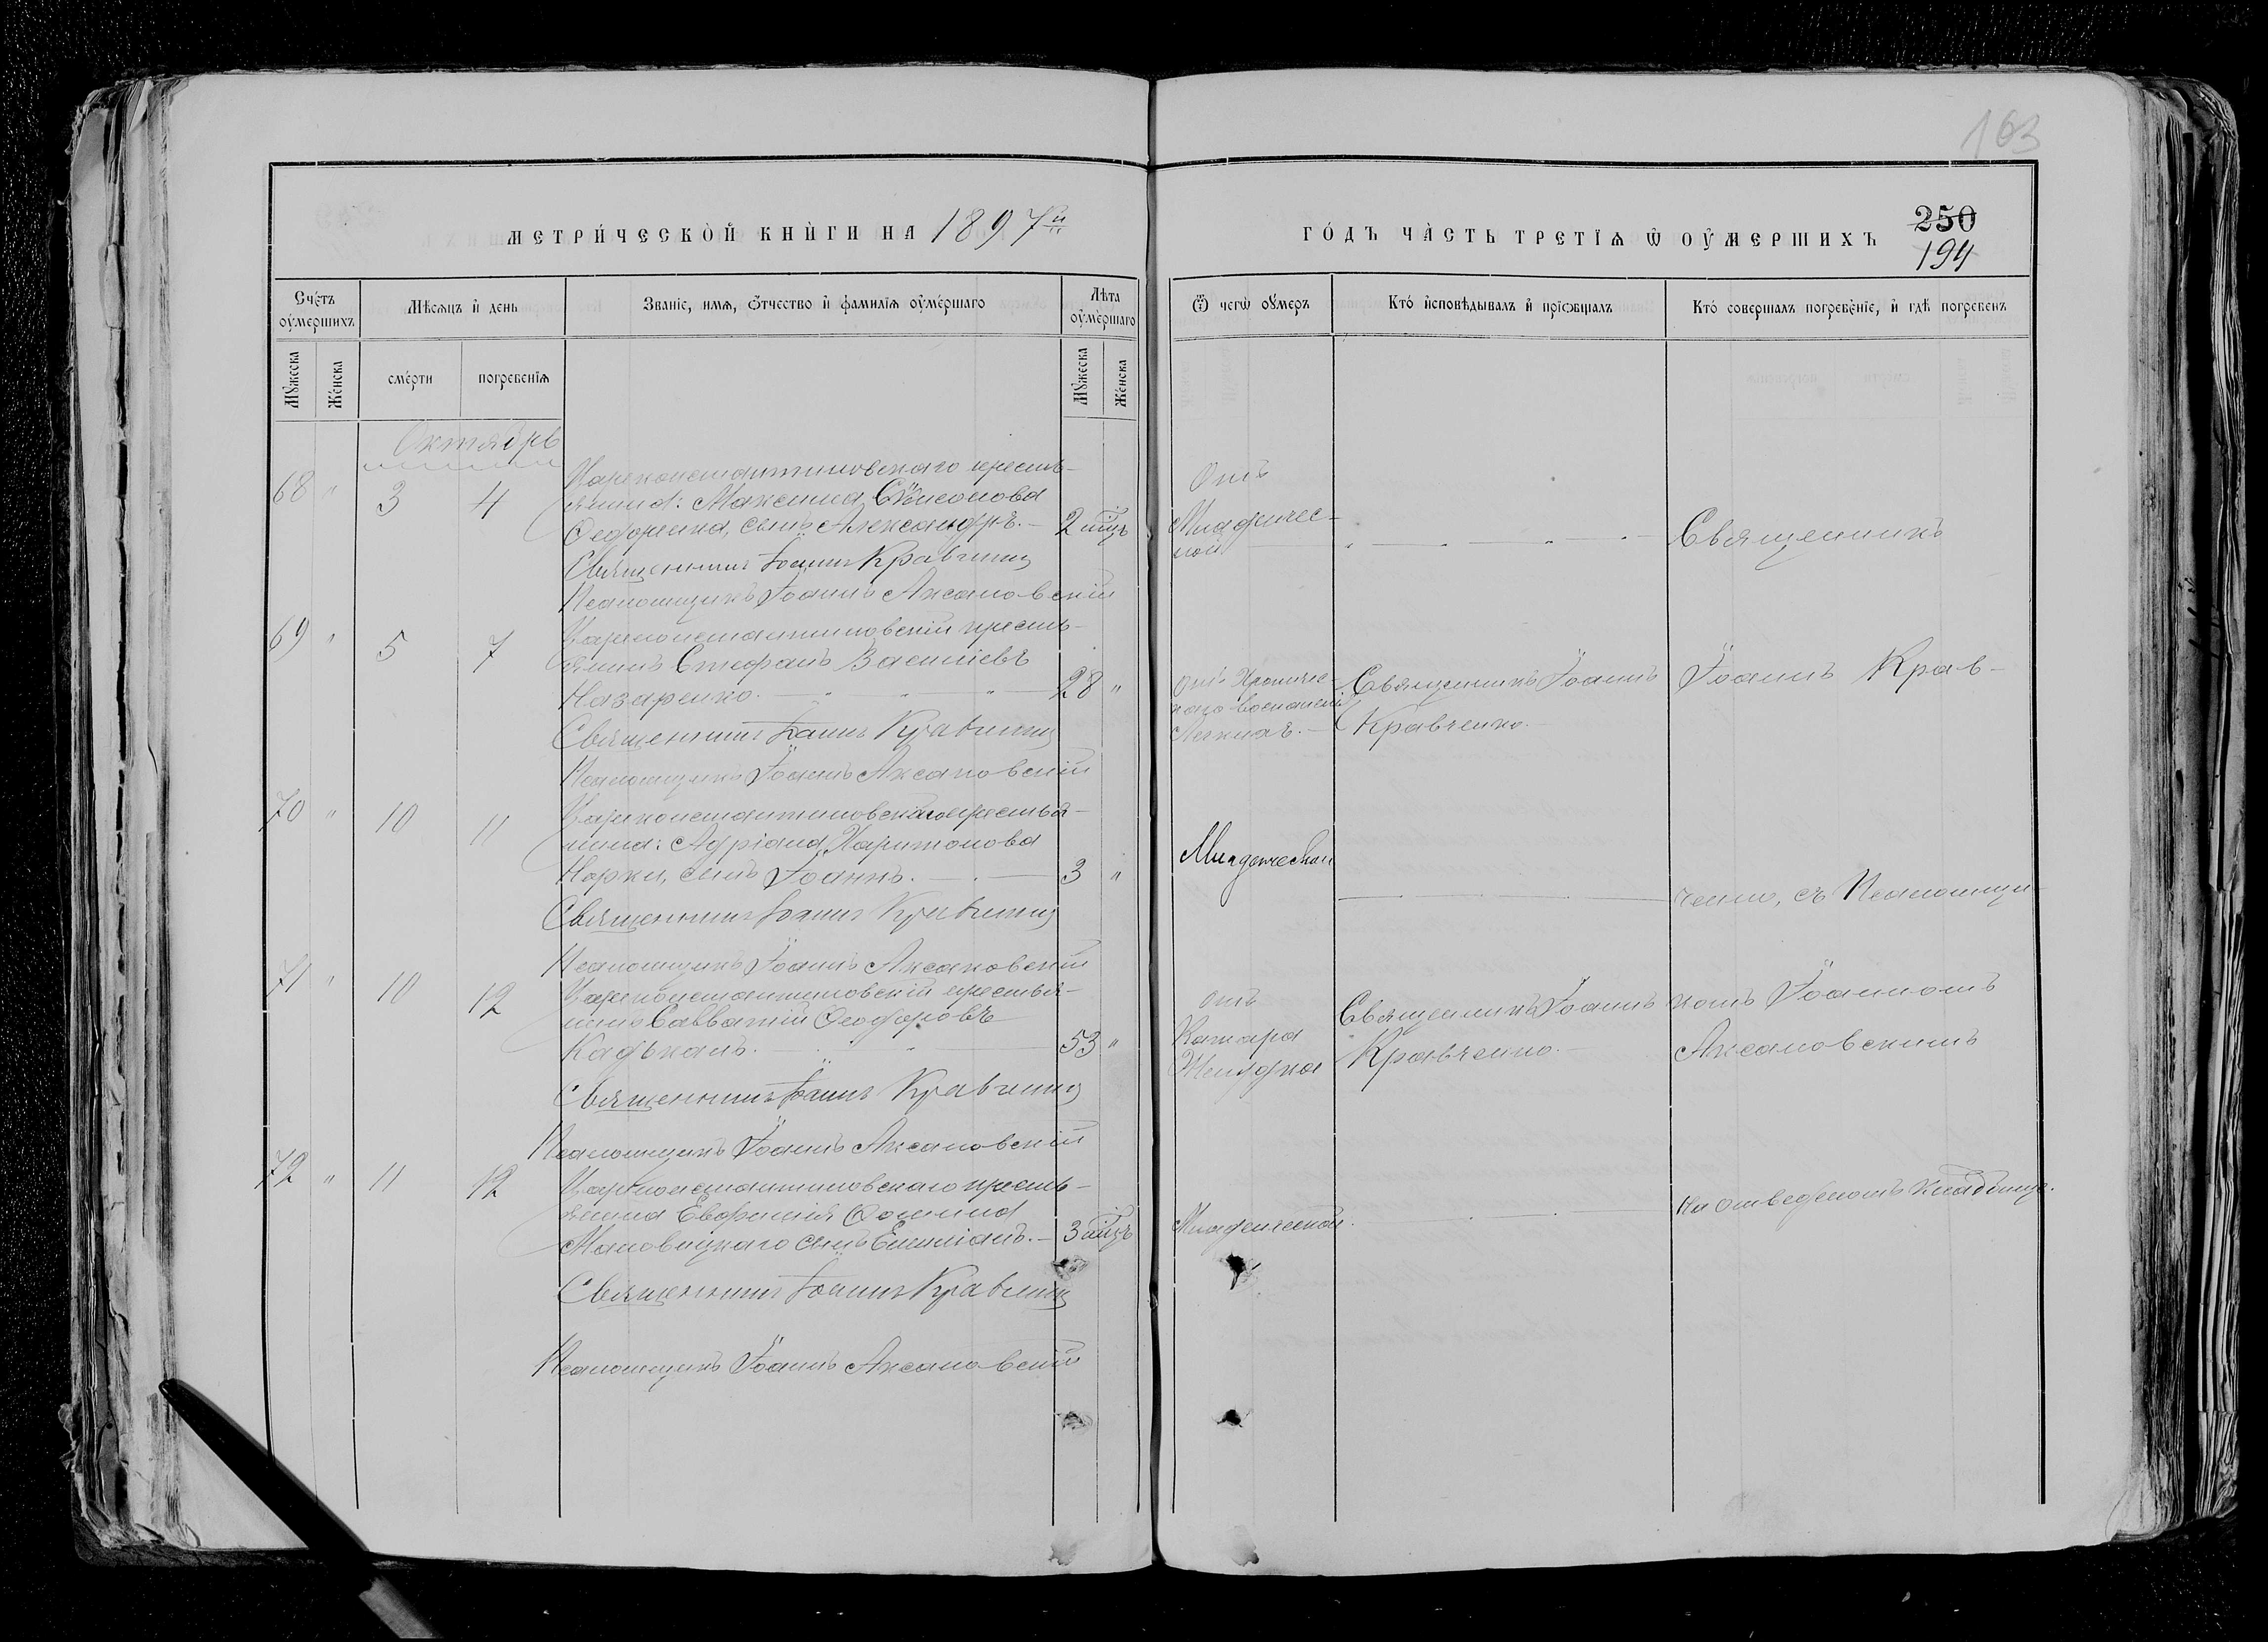 163
МЕТРИ́ЧЕСКО̀Й КНѝГИ НА 1897й
ГО́ДЪ ЧА̀СТЬ ТРЕТЇѦ Ѡ҆ ОУ҆МЕРШИХЪ
250
194
Сче́тъ оу҆ме́ршихъ
Мѣсѧцъ и҆ день
Званїе, имѧ, ѻ҆́тчество и҆ фамилїѧ оу҆ме́ршаго
Лѣта оу҆ме́ршаго
Ѿ чегѡ̀ оу҆́меръ
Кто́ и҆сповѣ́дывалъ и҆ прїѡбщалъ
Кто́ совершалъ погребе́нїе, и҆ гдѣ̀ погребенъ
Мꙋ́жеска
Же́нска
сме́рти
погребенїѧ
Мꙋ́жеска
Же́нска
Октябрь
68 " 3 4
Цареконстантиновскаго кресть-
янина: Максима Симонова
Федоренка, сынъ Александръ. — 2 мѣц.
Священникъ Іоаннъ Кравченко
Псаломщикъ Іоаннъ Аксановскій
Отъ
Младенчес-
кой
Священникъ
69 " 5 7
Цареконстантиновскій кресть-
янинъ Стефанъ Василіевъ
Назаренко. — 28 "
Священникъ Іоаннъ Кравченко
Псаломщикъ Іоаннъ Аксановскій
отъ Хроничес-
каго воспаленія
Легкихъ. —
Священникъ Іоаннъ
Кравченко. —
Іоаннъ Крав-
70 " 10 11
Цареконстантиновскаго крестья-
нина: Адріана Харитонова
Норки, сынъ Іоаннъ. — 3 "
Священникъ Іоаннъ Кравченко
Псаломщикъ Іоаннъ Аксановскій
Младенческой
ченко, съ Псаломщи-
71 " 10 12
Цареконстантиновскій крестья-
нинъ Савватій Феодоровъ
Кадькалъ. — 53 "
Священникъ Іоаннъ Кравченко
Псаломщикъ Іоаннъ Аксановскій
отъ
Катара
Желудка
Священникъ Іоаннъ
Кравченко. —
комъ Іоанномъ
Аксановскимъ
72 " 11 12
Цареконстантиновскаго кресть-
янина Евфимія Фомина
Маловицкаго сынъ Емиліанъ. — 3 мѣц.
Священникъ Іоаннъ Кравченко
Псаломщикъ Іоаннъ Аксановскій
Младенческой.
на отведеномъ кладбище.